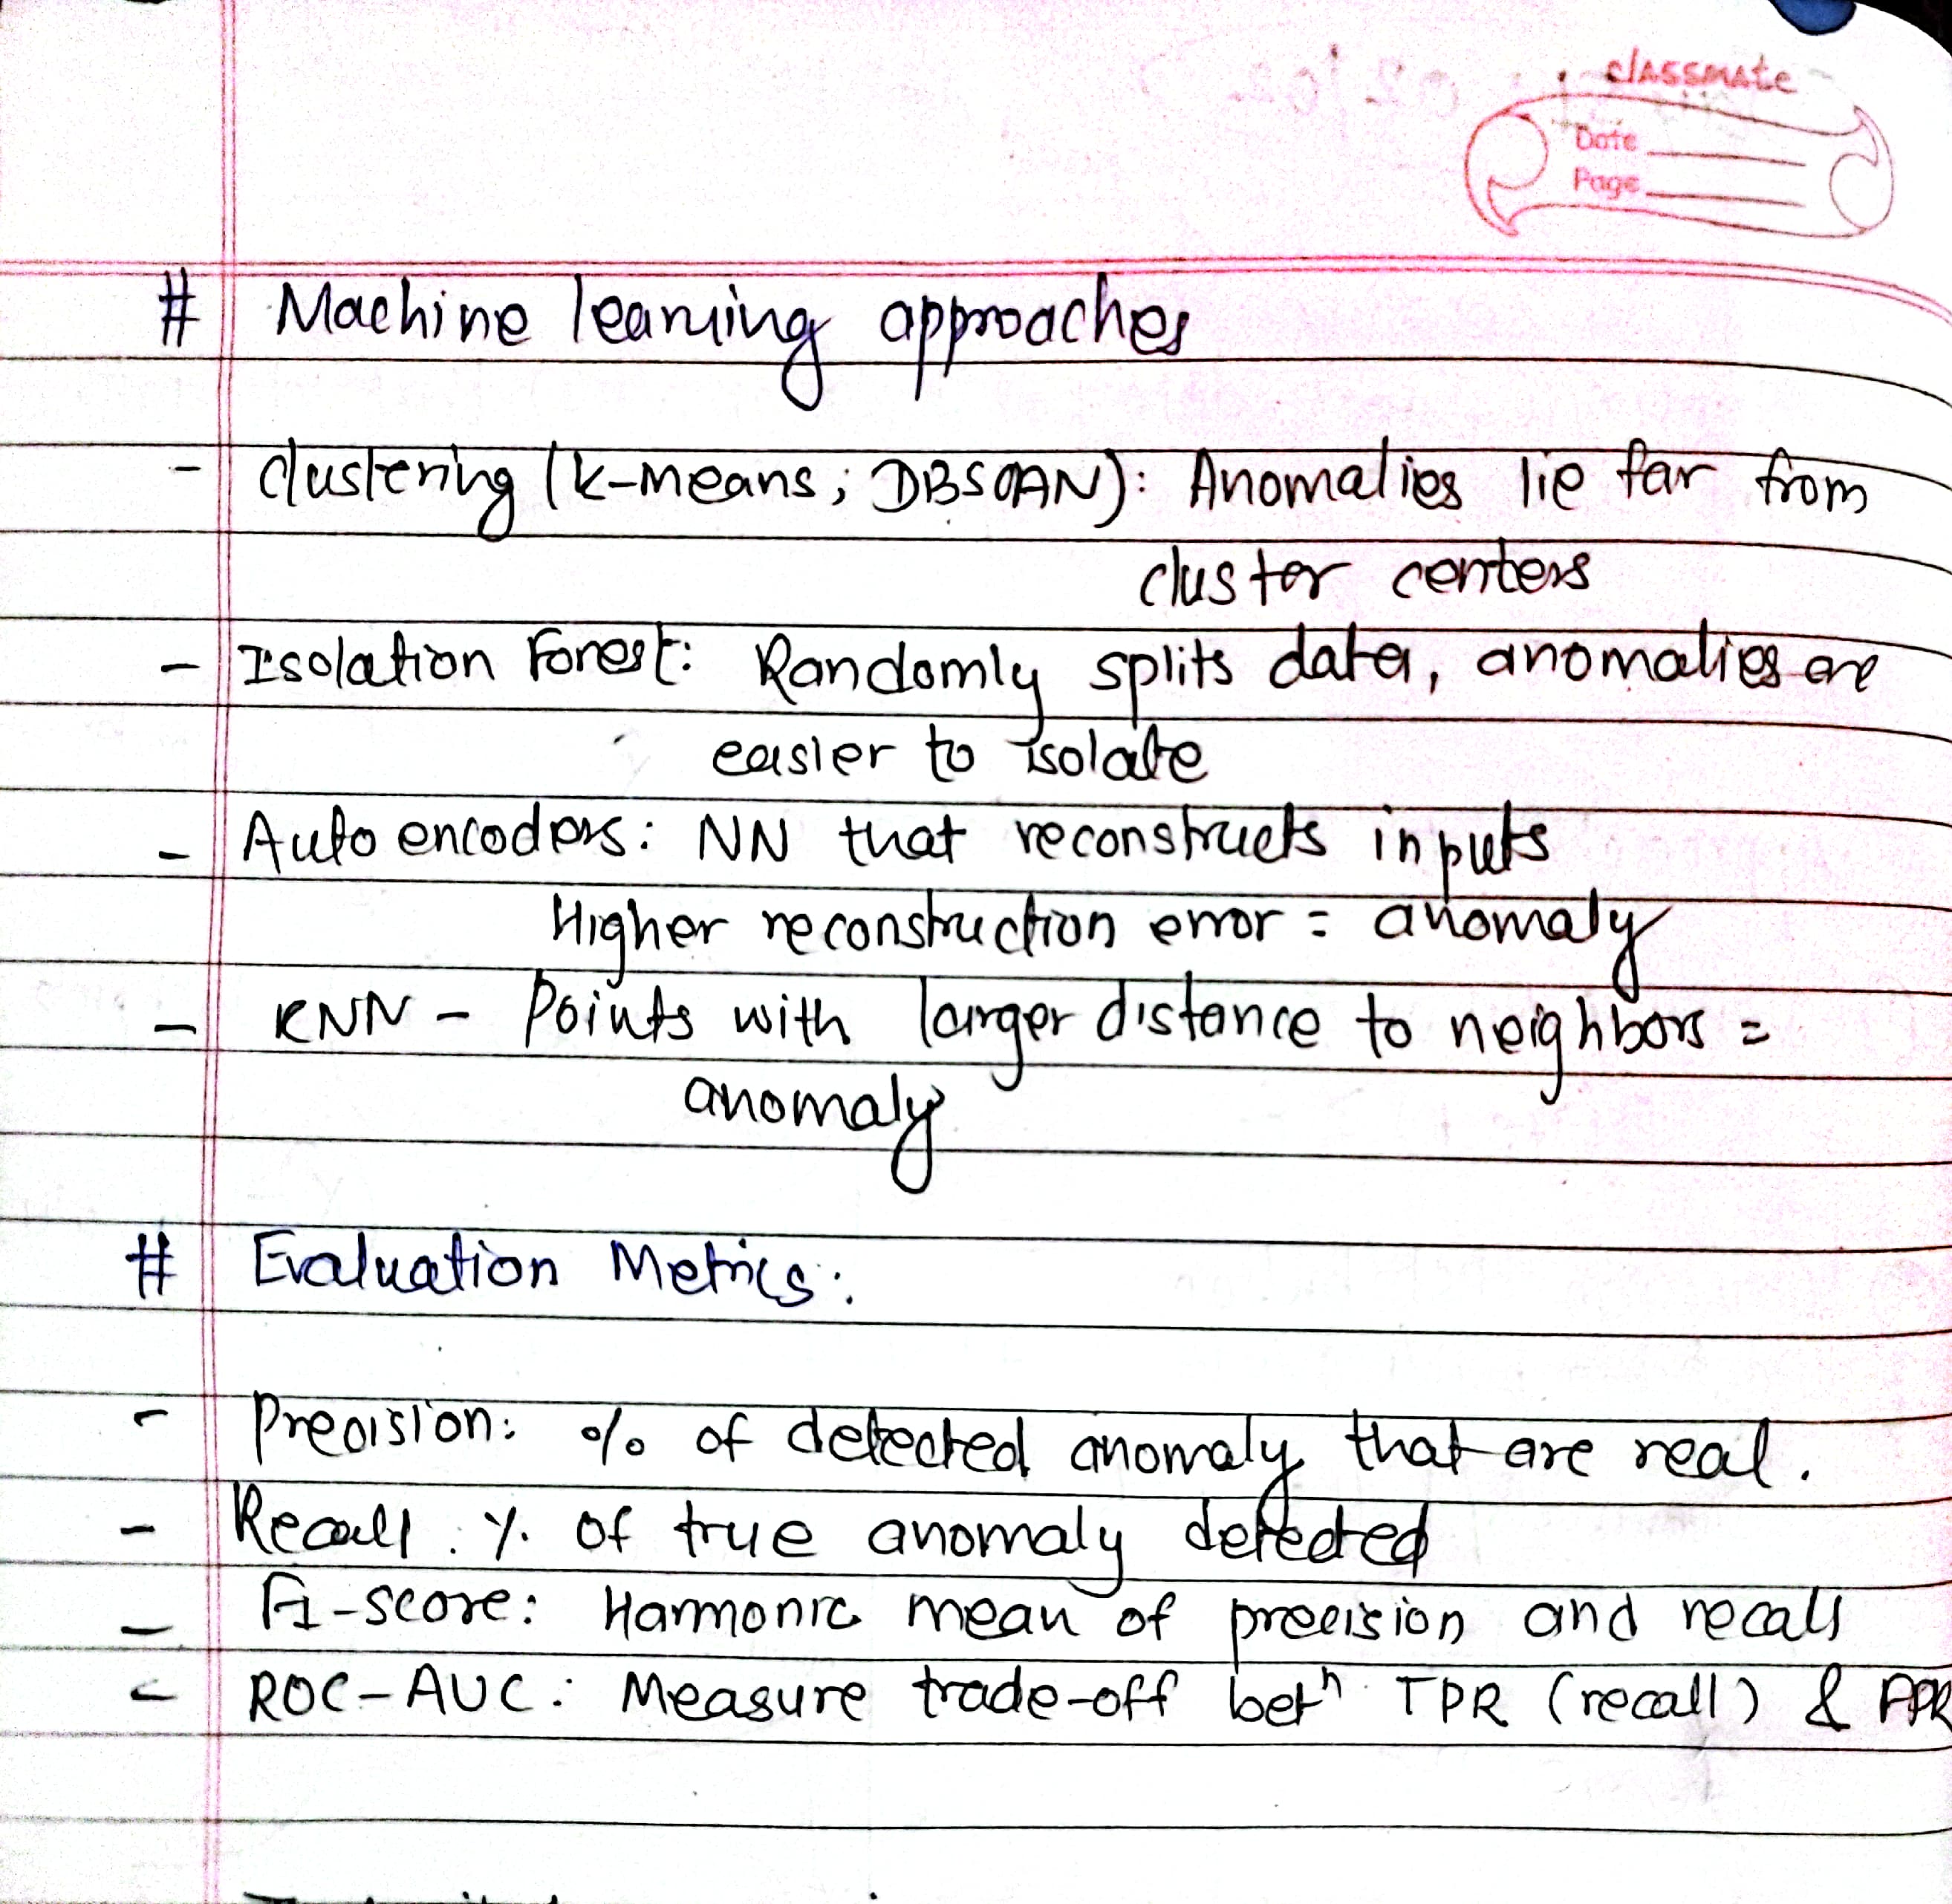 classmate
Date
Page
# Machine learning approaches
- clustering (k-means; DBSCAN): Anomalies lie far from
cluster centers
- Isolation Forest: Randomly splits data, anomalies are
easier to isolate
- Auto encoders: NN that reconstructs inputs
Higher reconstruction error = anomaly
- KNN - Points with larger distance to neighbors =
anomaly
# Evaluation Metrics:
- Precision: % of detected anomaly that are real.
- Recall : % of true anomaly detected
- F1-score: Harmonic mean of precision and recall
- ROC-AUC: Measure trade-off betn TPR (recall) & FPR